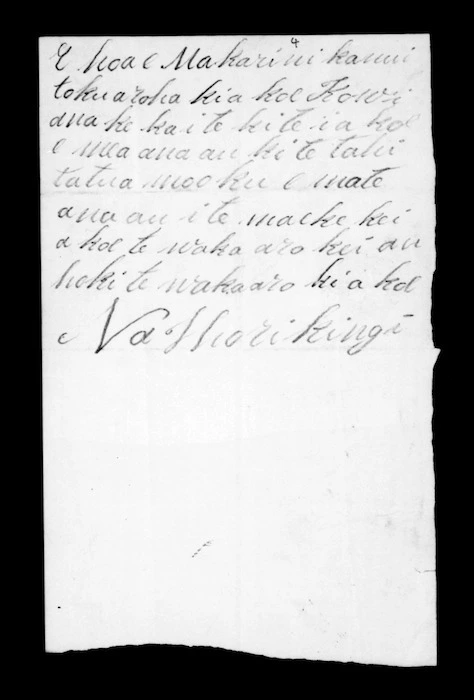 E hoa e Makarini kanui
4
toku aroha kia koe
ana ke kaite kite ia koe
e mea ana au kite tahi
tatua mooku e mate
ana au i te maeke kei
a koe te wakaaro kei au
hoki te wakaaro kia koe
Na Hhorikingi